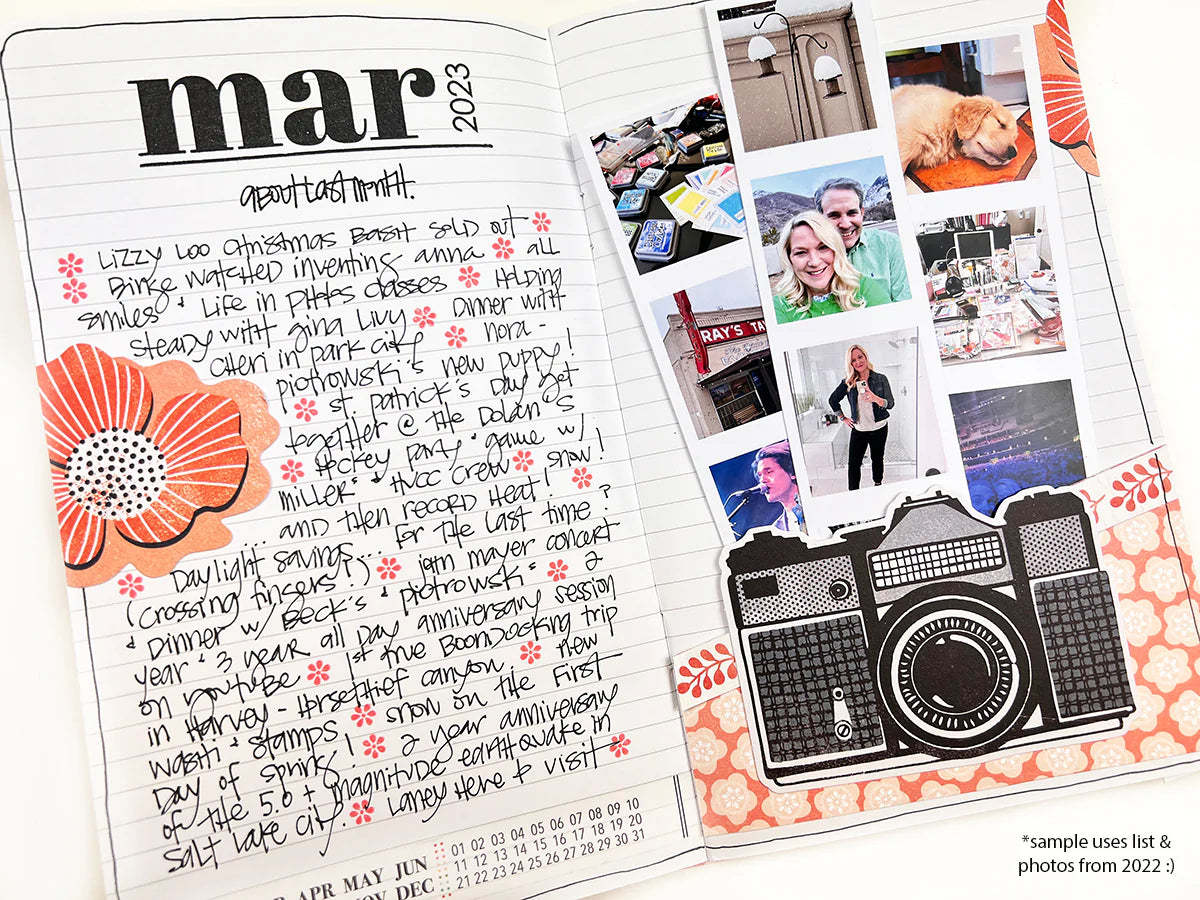 mar 2023
about last month.
Lizzy Loo Christmas Bash sold out
Binge watched inventing anna * all
smiles + Life in Pinks classes * Helping
steady with gina Livy * Dinner with
Cheri in park city * nora -
piotrowski's new puppy!
* st. patrick's Day get
together @ the Dolan's
* Hockey party + game w/
miller's + HVCC crew * snow!
... and then record heat! *
Daylight savings... for the last time?
(crossing fingers!) * john mayer concert
+ Dinner w/ Beck's + piotrowski's * 2
year + 3 year all Day anniversary session
on youtube * 1st true BoonDocking trip
in Harvey - Horsethief canyon * new
washi + stamps * snow on the First
Day of spring! * 2 year anniversary
of the 5.0 + magnitude earthquake in
salt lake city. * Laney Here to visit *
APR MAY JUN
DEC
01 02 03 04 05 06 07 08 09 10
11 12 13 14 15 16 17 18 19 20
21 22 23 24 25 26 27 28 29 30 31
RAY'S
*sample uses list &
photos from 2022 :)